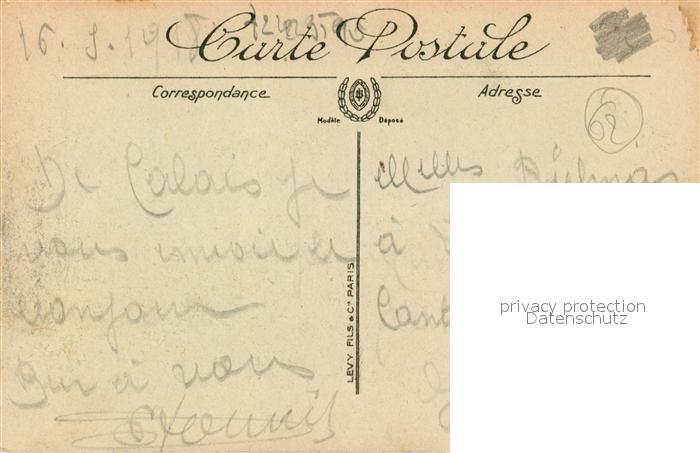 16. 1918
Carte Postale
Correspondance
Adresse
Modèle Déposé
62
De Calais je
vous envoie le
bonjour
Bien à vous
LEVY FILS & Cie PARIS
Melles
à
Cant
privacy protection
Datenschutz